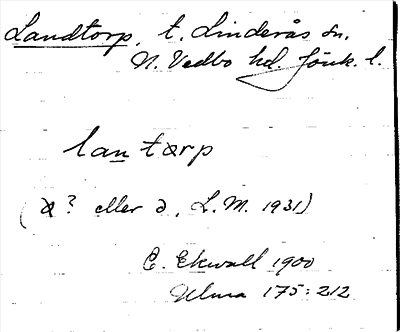 Landtorp, t. Linderås sn.
N. Vedbo hd. Jönk. l.
lantɑrp
(ɑ? eller ə, L.M. 1931)
E. Ekwall 1900
Ulma 175:212